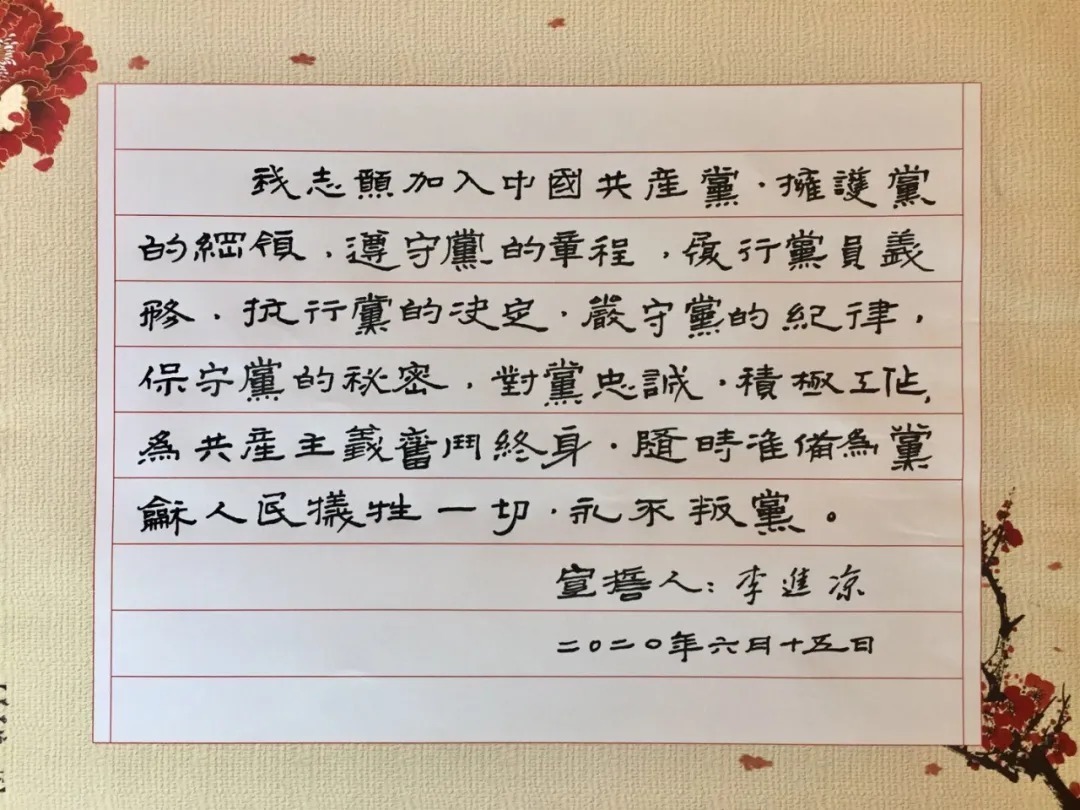 我志願加入中國共産黨，擁護黨
的綱領，遵守黨的章程，履行黨員義
務，执行黨的决定，嚴守黨的紀律，
保守黨的秘密，對黨忠誠，積極工作，
為共産主義奮鬥終身，隨時准備為黨
龢人民犧牲一切，永不叛黨。
宣誓人：李進凉
二〇二〇年六月十五日